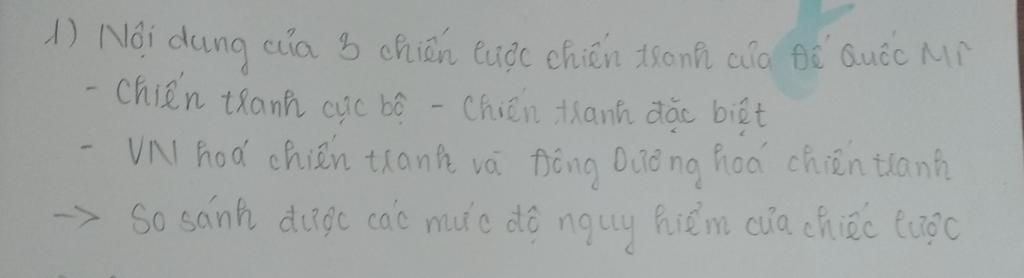 1) Nội dung của 3 chiến lược chiến tranh của Đế Quốc Mĩ
- Chiến tranh cục bộ - Chiến tranh đặc biệt
- VN hoá chiến tranh và Đông Dương hoá chiến tranh
-> So sánh được các mức độ nguy hiểm của chiếc lược